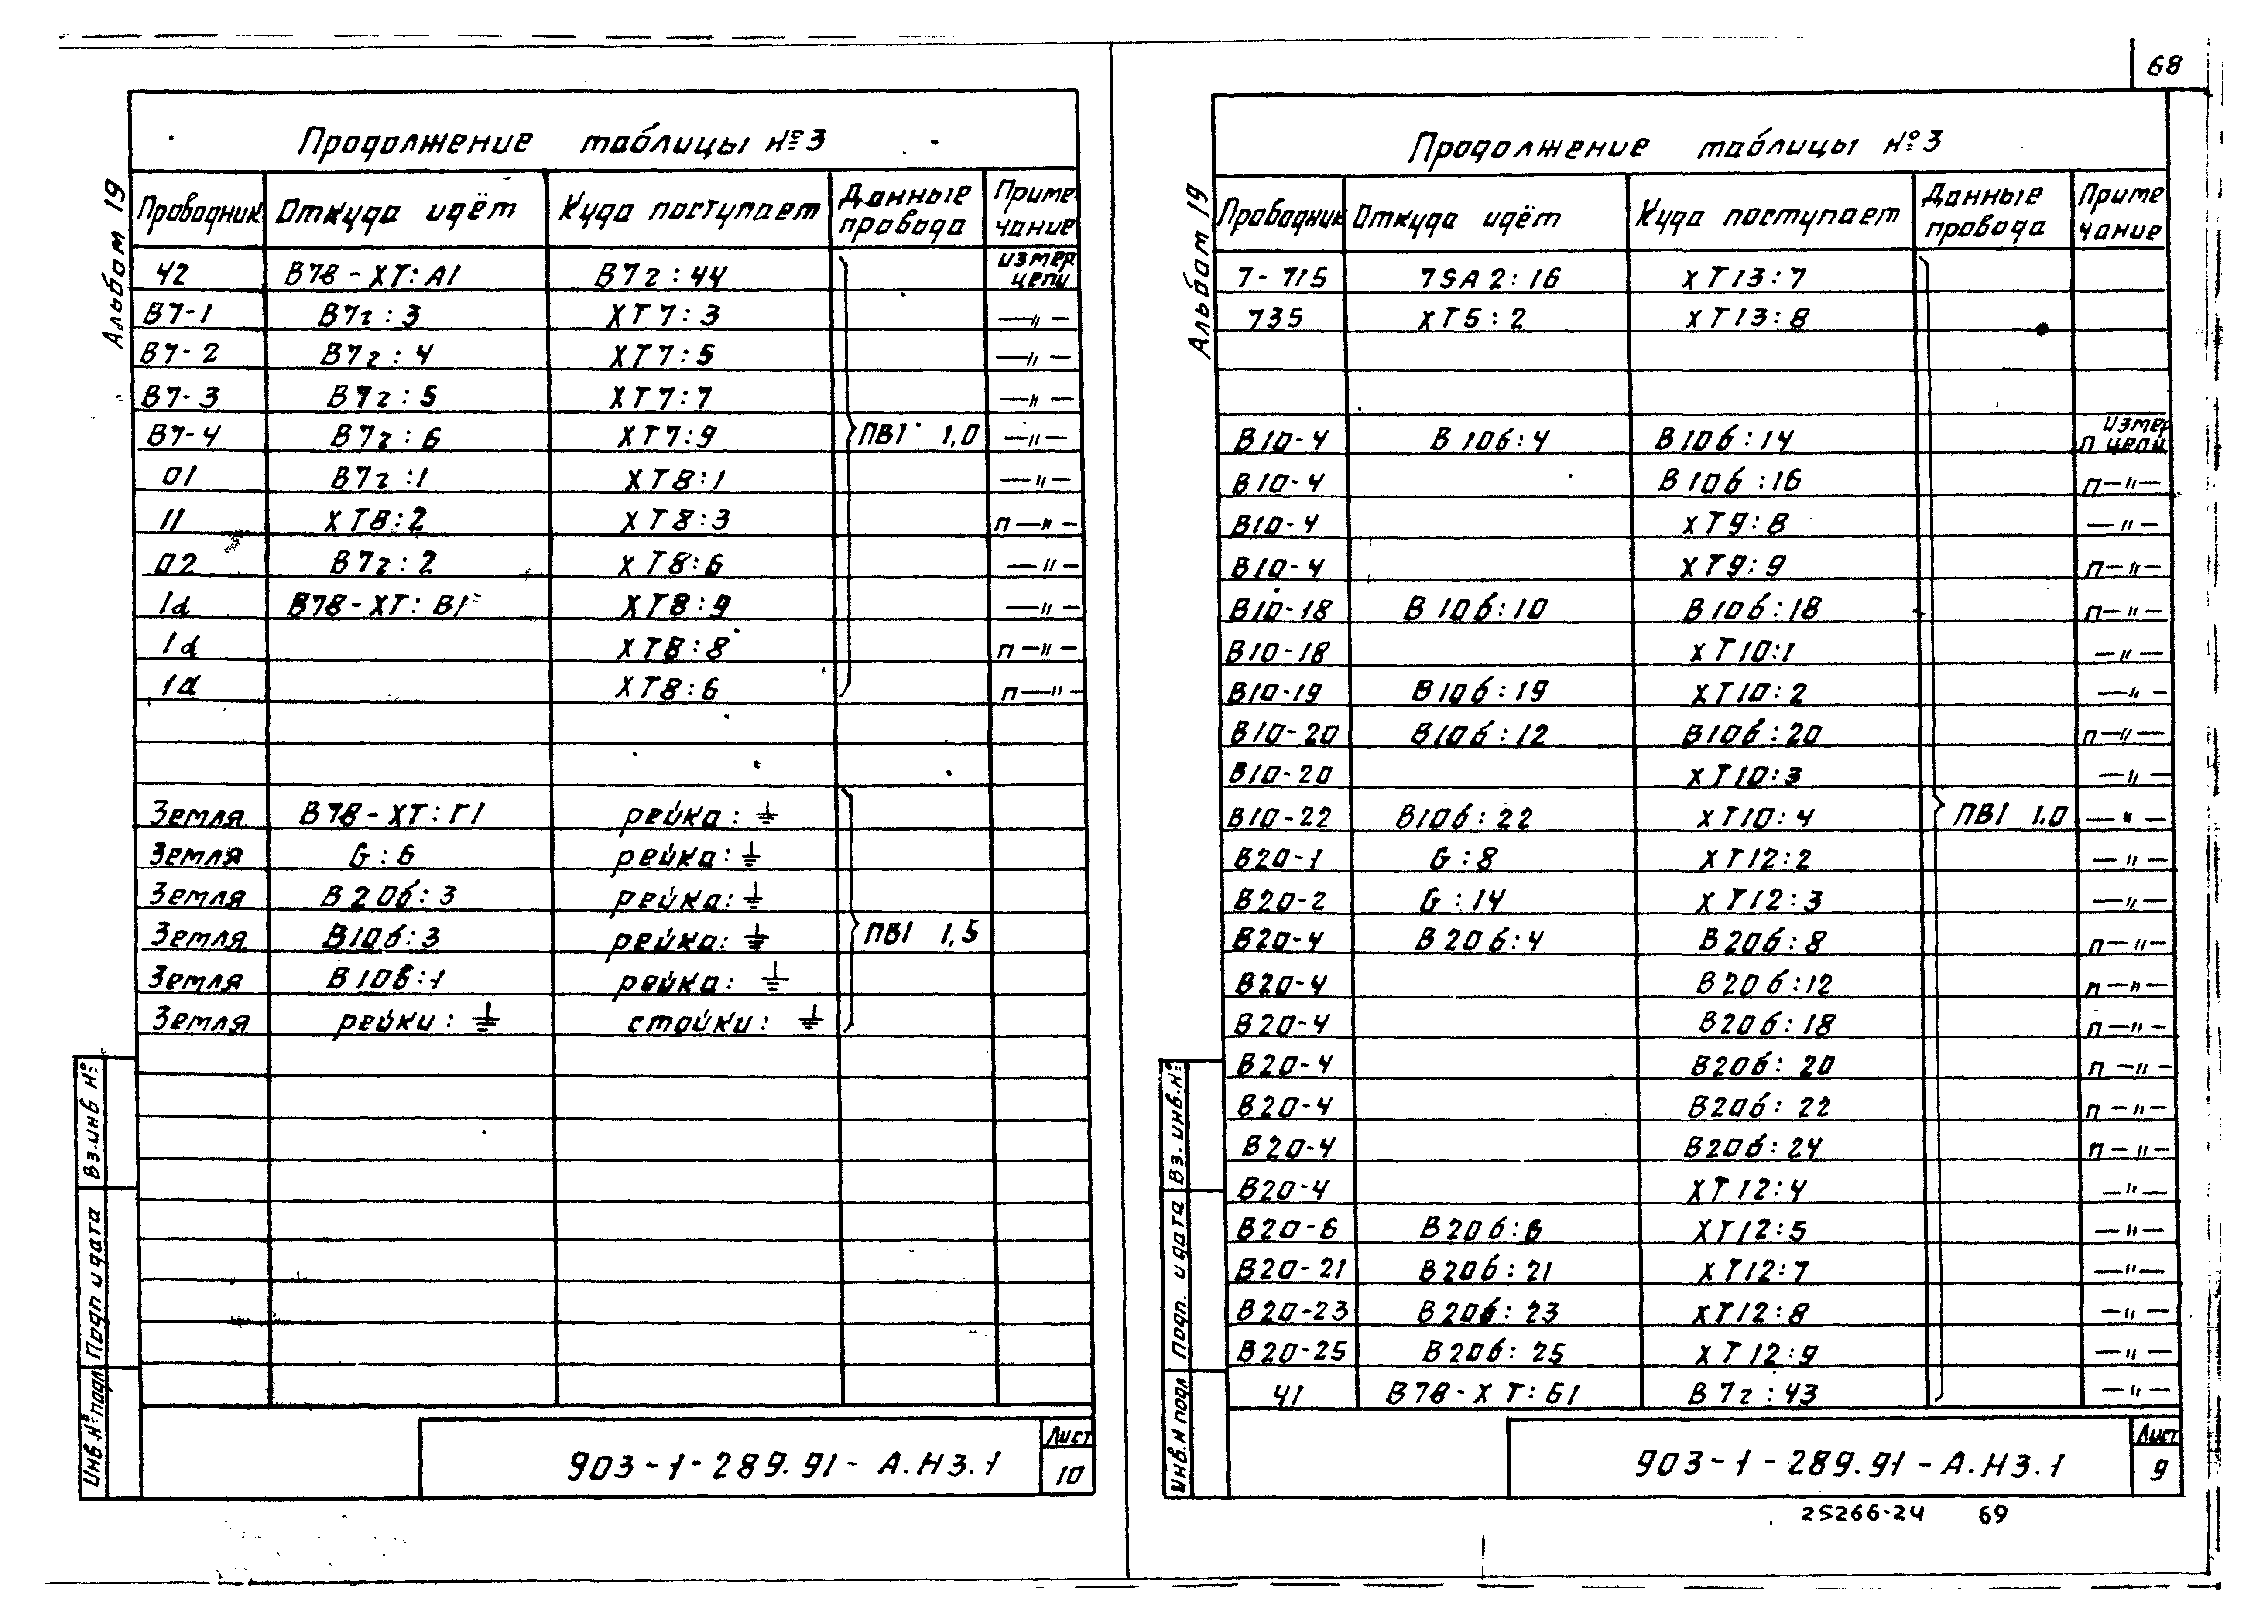 68
Альбом 19
Продолжение таблицы №3
Проводник Откуда идёт Куда поступает Данные провода Приме чание
42 В7в-ХТ:А1 В7г:44 измер цепи
В7-1 В7г:3 ХТ7:3 —〃—
В7-2 В7г:4 ХТ7:5 —〃—
В7-3 В7г:5 ХТ7:7 —〃—
В7-4 В7г:6 ХТ7:9 ПВ1 1,0 —〃—
01 В7г:1 ХТ8:1 —〃—
11 ХТ8:2 ХТ8:3 п—〃—
02 В7г:2 ХТ8:6 —〃—
1d В7в-ХТ:В1 ХТ8:9 —〃—
1d ХТ8:8 п—〃—
1d ХТ8:6 п—〃—
Земля В7в-ХТ:Г1 рейка: ⏚
Земля G:6 рейка: ⏚
Земля В20б:3 рейка: ⏚
Земля В10б:3 рейка: ⏚ ПВ1 1,5
Земля В10в:1 рейка: ⏚
Земля рейки: ⏚ стойки: ⏚
Вз.инв №
Подп и дата
Инв.№ подл
903-1-289.91-А.НЗ.1
Лист
10
Альбом 19
Продолжение таблицы №3
Проводник Откуда идёт Куда поступает Данные провода Приме чание
7-715 7SA2:16 ХТ13:7
735 ХТ5:2 ХТ13:8
В10-4 В10б:4 В10б:14 измер п цепи
В10-4 В10б:16 п—〃—
В10-4 ХТ9:8 —〃—
В10-4 ХТ9:9 п—〃—
В10-18 В10б:10 В10б:18 п—〃—
В10-18 ХТ10:1 —〃—
В10-19 В10б:19 ХТ10:2 —〃—
В10-20 В10б:12 В10б:20 п—〃—
В10-20 ХТ10:3 —〃—
В10-22 В10б:22 ХТ10:4 ПВ1 1.0 —〃—
В20-1 G:8 ХТ12:2 —〃—
В20-2 G:14 ХТ12:3 —〃—
В20-4 В20б:4 В20б:8 п—〃—
В20-4 В20б:12 п—〃—
В20-4 В20б:18 п—〃—
В20-4 В20б:20 п—〃—
В20-4 В20б:22 п—〃—
В20-4 В20б:24 п—〃—
В20-4 ХТ12:4 —〃—
В20-6 В20б:6 ХТ12:5 —〃—
В20-21 В20б:21 ХТ12:7 —〃—
В20-23 В20б:23 ХТ12:8 —〃—
В20-25 В20б:25 ХТ12:9 —〃—
41 В7в-ХТ:Б1 В7г:43 —〃—
Вз.инв.№
Подп. и дата
Инв.N подл
903-1-289.91-А.НЗ.1
Лист
9
25266-24 69